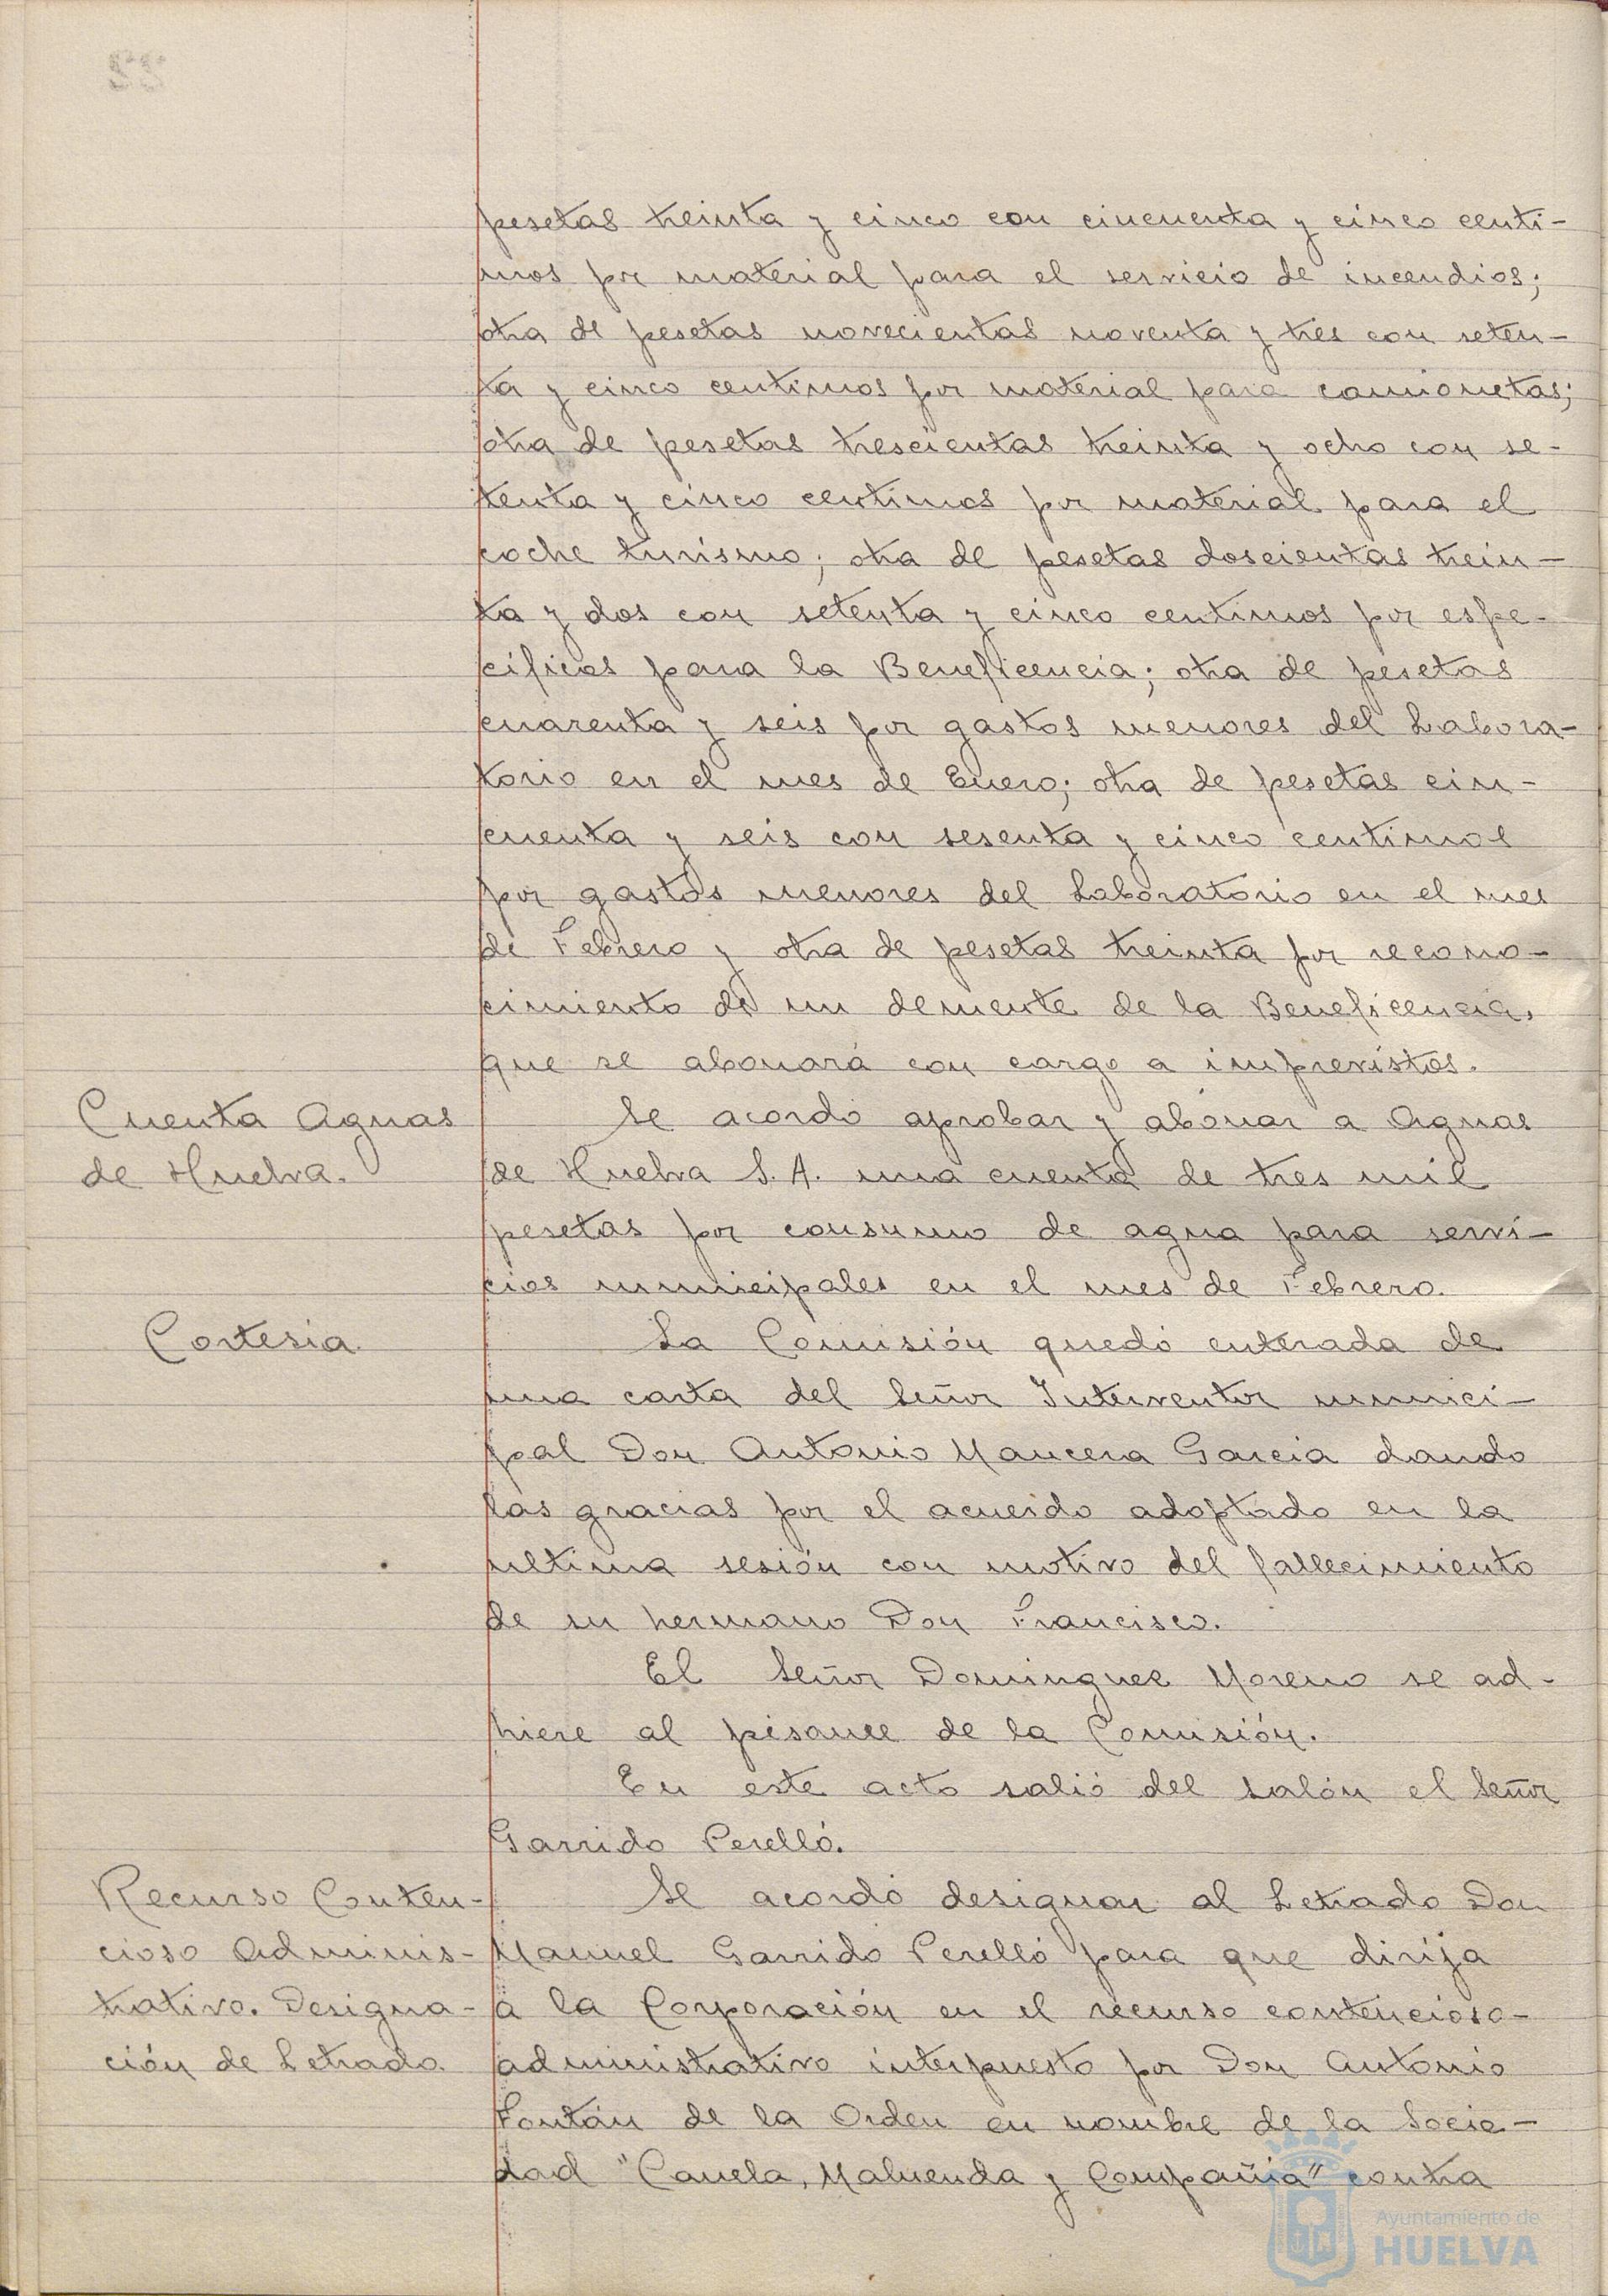 pesetas treinta y cinco con cincuenta y cinco centi-
mos por material para el servicio de incendios;
otra de pesetas novecientas noventa y tres con seten-
ta y cinco centimos por material para camionetas;
otra de pesetas trescientas treinta y ocho con se-
tenta y cinco centimos por material para el
coche turismo; otra de pesetas doscientas trein-
ta y dos con setenta y cinco centimos por espe-
cificos para la Beneficencia; otra de pesetas
cuarenta y seis por gastos menores del Labora-
torio en el mes de Enero; otra de pesetas cin-
cuenta y seis con sesenta y cinco centimos
por gastos menores del Laboratorio en el mes
de Febrero y otra de pesetas treinta por recono-
cimiento de un demente de la Beneficencia,
que se abonará con cargo a imprevistos.
Cuenta Aguas
de Huelva.
Se acordó aprobar y abonar a Aguas
de Huelva S. A. una cuenta de tres mil
pesetas por consumo de agua para servi-
cios municipales en el mes de Febrero.
Cortesia
La Comisión quedó enterada de
una carta del Señor Interventor munici-
pal Don Antonio Mancera Garcia dando
las gracias por el acuerdo adoptado en la
ultima sesión con motivo del fallecimiento
de su hermano Don Francisco.
El Señor Dominguez Moreno se ad-
hiere al pésame de la Comisión.
En este acto salió del salón el Señor
Garrido Perelló.
Recurso Conten-
cioso Adminis-
trativo. Designa-
ción de Letrado
Se acordó designar al Letrado Don
Manuel Garrido Perelló para que dirija
a la Corporación en el recurso contencioso-
administrativo interpuesto por Don Antonio
Fontán de la Orden en nombre de la Socie-
dad "Canela, Maluenda y Compañia" contra
Ayuntamiento de
HUELVA